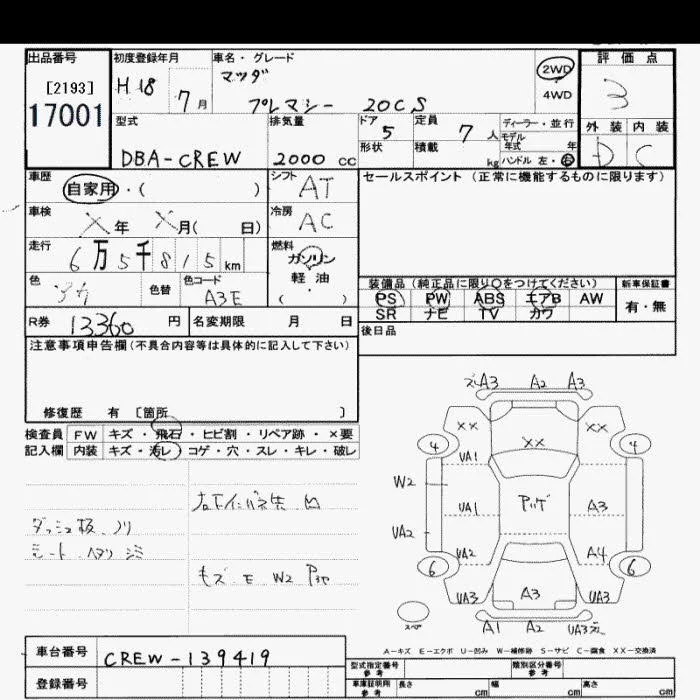 出品番号
[2193]
17001
初度登録年月
H18 7月
車名・グレード
マツダ
プレマシー 20CS
2WD
4WD
評価点
3
外装 内装
D C
型式
DBA-CREW
排気量
2000 cc
ドア 5
形状
定員 7 人
積載 kg
ディーラー・並行
モデル
年式 年
ハンドル 左・右
車歴
自家用・( )
シフト
AT
車検
X年 X月( 日)
冷房
AC
走行
6万5千815 km
燃料
ガソリン
軽油
( )
色
アカ
色替
色コード
A3E
R券 13360 円
名変期限 月 日
セールスポイント(正常に機能するものに限ります)
装備品(純正品に限り○をつけてください)
PS PW ABS エアB AW
SR ナビ TV カワ
新車保証書
有・無
後日品
注意事項申告欄(不具合内容等は具体的に記入して下さい)
修復歴 有 〔箇所 〕
検査員
記入欄
FW キズ・飛石・ヒビ割・リペア跡・×要
内装 キズ・汚レ・コゲ・穴・スレ・キレ・破レ
ダッシュ板 ノリ
シート ヘタリ シミ
キズ E W2
A3 A2 A3
XX XX XX
4 4
UA1
W2 UA1 A3
UA2 UA2 A4
6 6
UA3 A3 UA3
スペア
A1 A2 UA3
A-キズ E-エクボ U-凹み W-補修跡 S-サビ C-腐食 XX-交換済
車台番号
CREW-139419
登録番号
型式指定番号
参考
類別区分番号
参考
車庫証明用
参考
長さ cm 幅 cm 高さ cm